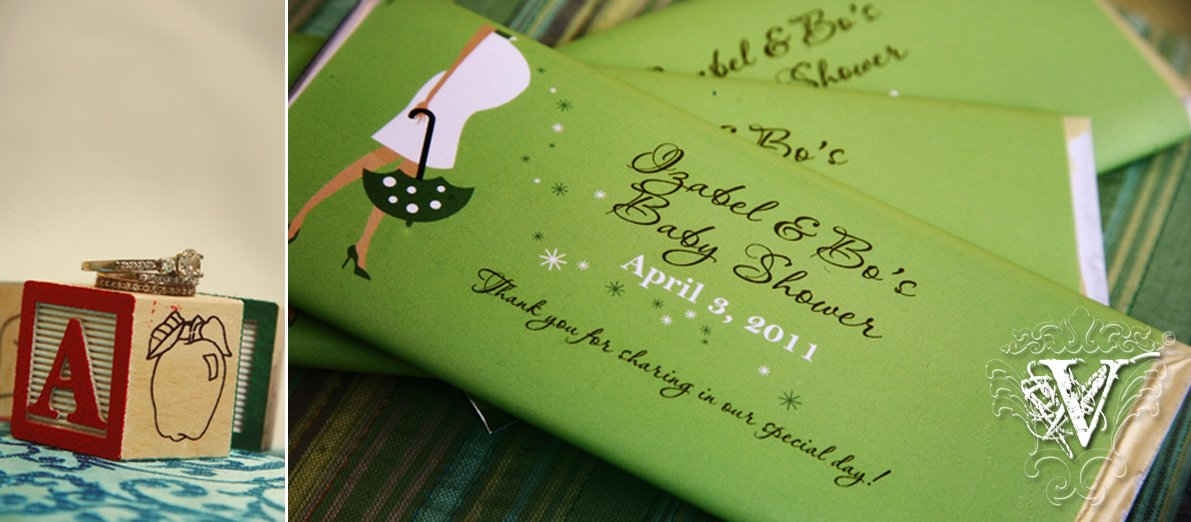 A
Izabel & Bo's
Baby Shower
April 3, 2011
Thank you for sharing in our special day!
Bo's
bel & Bo's
Shower
V